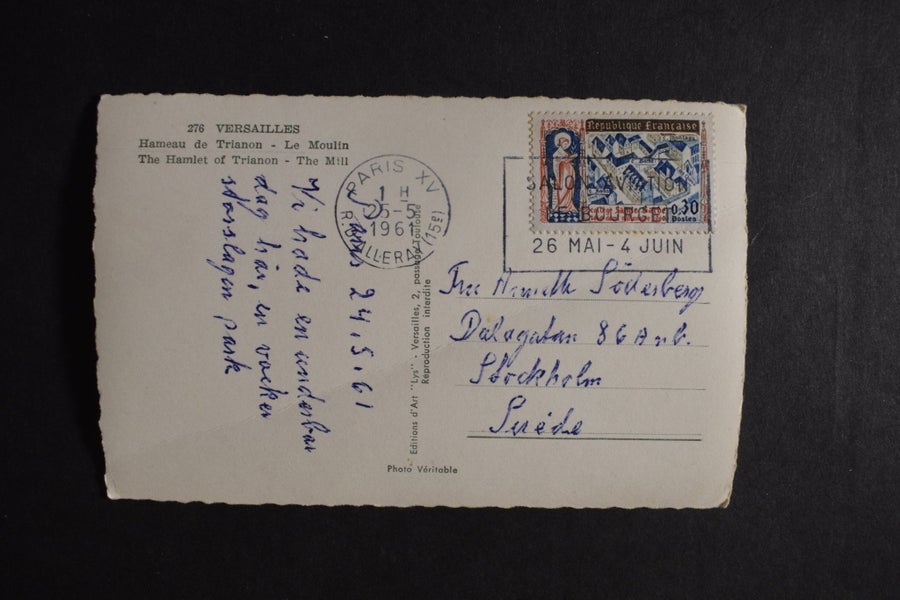 276 VERSAILLES
Hameau de Trianon - Le Moulin
The Hamlet of Trianon - The Mill
24.5.61
Vi hade en underbar
dag här, en vacker
slottslagen park
Editions d'Art "Lys" - Versailles, 2, passage Toulouse
Reproduction interdite
Photo Véritable
PARIS XV
1 H
25-5
1961
(15e)
République Française
0,30
Postes
SALON AVIATION
BOURGET
26 MAI - 4 JUIN
Söderberg
Dalagatan 86
Stockholm
Suède